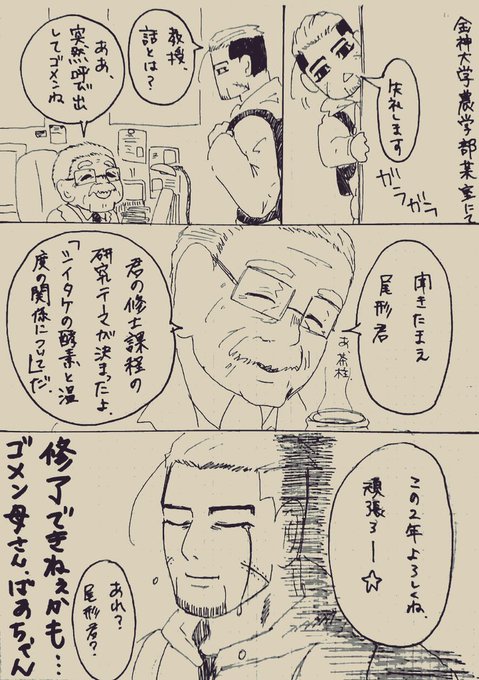 金神大学農学部某室にて
失礼します
ガラガラ
教授、
話とは？
ああ、
突然呼び出
してゴメンね
聞きたまえ
尾形君
あ茶柱
君の修士課程の
研究テーマが決まったよ。
「シイタケの酵素と温
度の関係について」だ。
この2年よろしくね、
頑張ろー☆
あれ？
尾形君？
修了できねぇかも…
ゴメン母さん、ばあちゃん